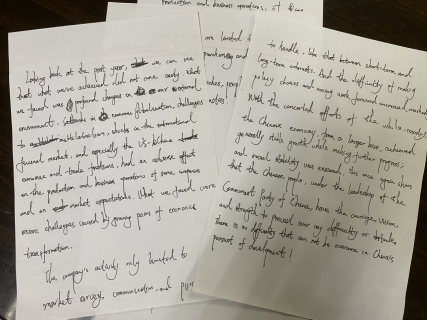 production and business operations, of some
Looking back at the past year, we can see
that what we've achieved did not come easily. What
we faced was profound changes in our external
environment. Setbacks in economic globalization, challenges
to multilateralism, shocks in the international
financial market, and especially the US-China
economic and trade frictions, had an adverse effect
on the production and business operations of some companies
and on market expectations. What we faced were
severe challenges caused by growing pains of economic
transformation.
The company's activity only limited to
market survey, communication, and
are limited to
to handle, like that between short-term and
long-term interests. And the difficulty of making
policy choices and moving work forward increased markedly.
With the concerted efforts of the whole
the Chinese economy, from a larger base, achieved
generally stable growth while making further progress;
and social stability was ensured. This once again shows
that the Chinese people, under the leadership of the
Communist Party of China, have the courage, vision,
and strength to prevail over any difficulty or obstacle.
There is no difficulty that can not be overcome in China's
pursuit of development!